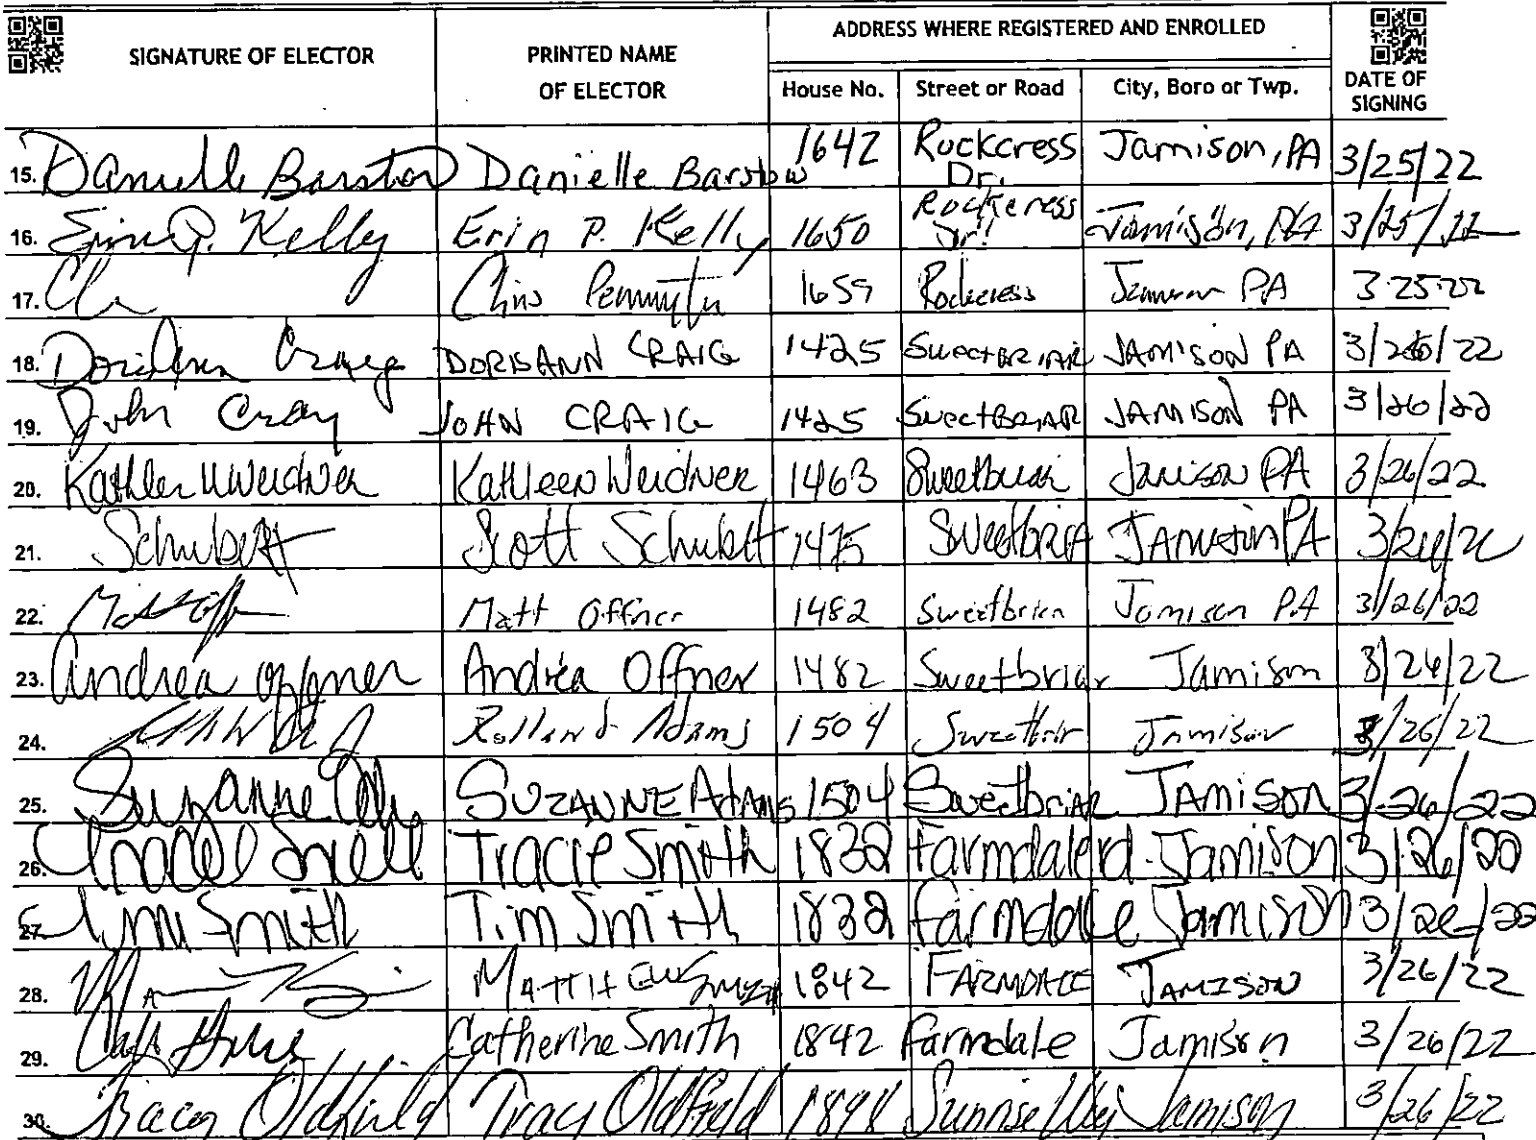 SIGNATURE OF ELECTOR
PRINTED NAME OF ELECTOR
ADDRESS WHERE REGISTERED AND ENROLLED
House No. Street or Road City, Boro or Twp.
DATE OF SIGNING
15. Danielle Barstow Danielle Barstow 1642 Rockcress Dr. Jamison, PA 3/25/22
16. Erin P. Kelly Erin P. Kelly 1650 Rockcress Dr. Jamison, PA 3/25/22
17. Chris 1659 Rockcress Jamison PA 3-25-22
18. DorisAnn Craig DORISANN CRAIG 1425 SweetBRIAR JAMISON PA 3/26/22
19. John Craig JOHN CRAIG 1425 SweetBRIAR JAMISON PA 3/26/22
20. Kathleen Weidner Kathleen Weidner 1463 Sweetbriar Jamison PA 3/26/22
21. Schubert Scott Schubert 1475 Sweetbriar JAMISON PA
22. Matt Offner 1482 Sweetbriar Jamison PA 3/26/22
23. Andrea Offner Andrea Offner 1482 Sweetbriar Jamison 3/26/22
24. Rolland Adams 1504 Sweetbriar Jamison 3/26/22
25. Suzanne SUZANNE Adams 1504 Sweetbriar JAMISON 3/26/22
26. Tracie Smith 1832 Farmdale rd. Jamison
27. Tim Smith Tim Smith 1832 Farmdale Jamison
28. MATTHEW Smith 1842 FARMDALE JAMISON 3/26/22
29. Catherine Smith 1842 Farmdale Jamison 3/26/22
30. Tracy Oldfield Tracy Oldfield Sunrise Way Jamison 3/26/22